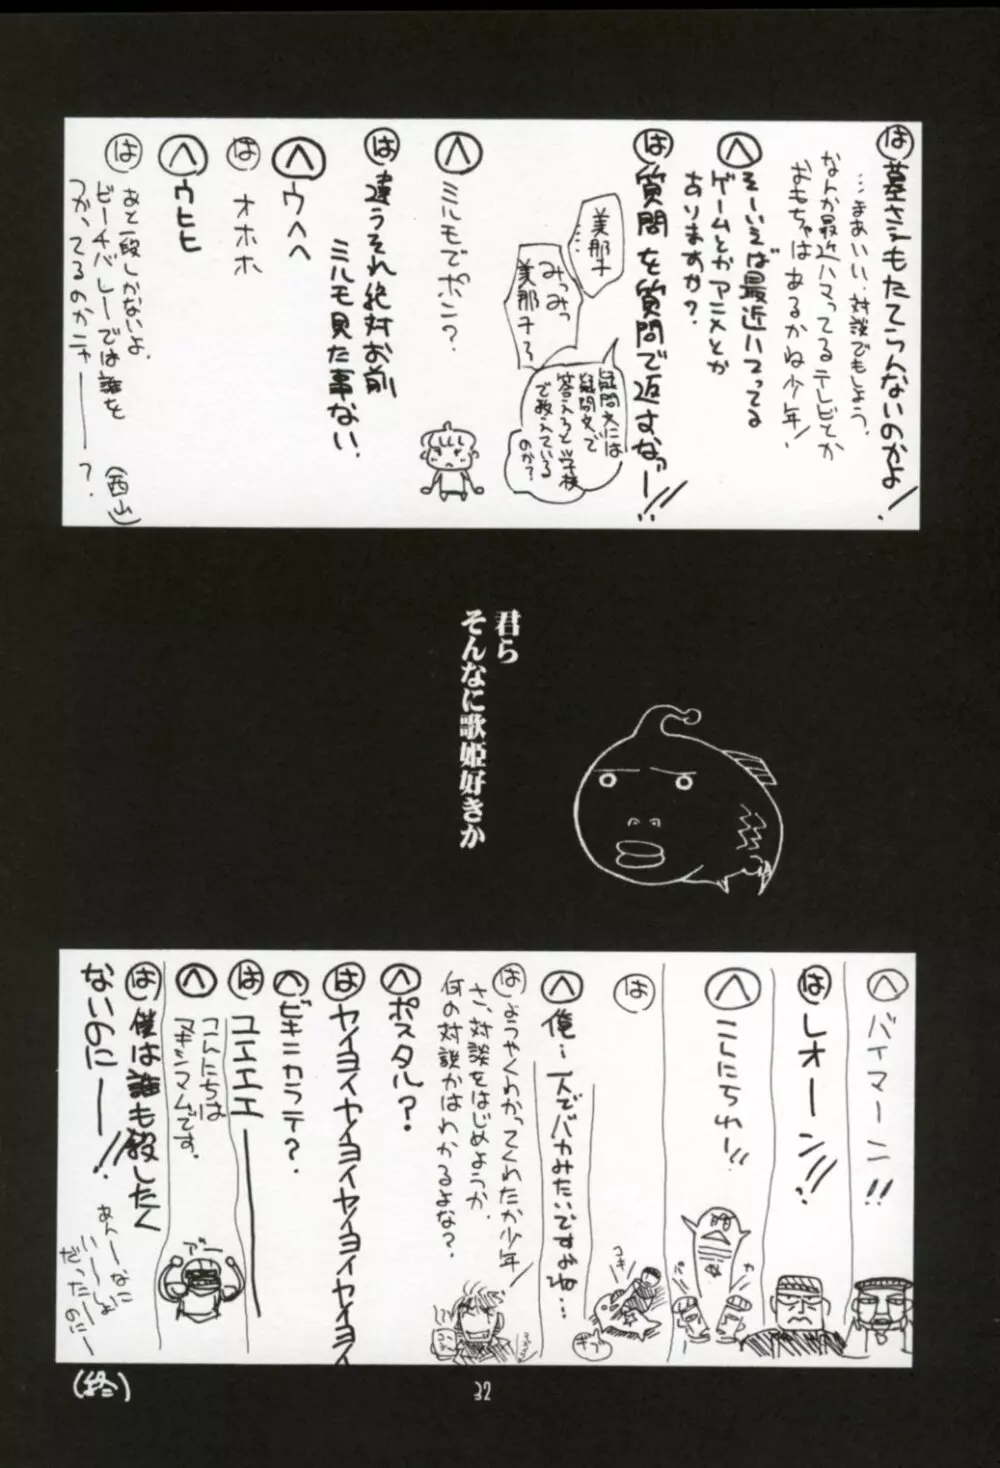 は 墓さえもたてらんないのかよ!
…まあいい、対談でもしよう、
なんか最近ハマってるテレビとか
おもちゃはあるかね少年!
へ そーいえば最近ハマってる
ゲームとかアニメとか
ありますか?
は 質問を質問で返すなァー!!
美那子…
みつみつ
美那子〜
疑問文には
疑問文で
答えろと学校
で教えている
のか?
へ ミルモでポン?
は 違うそれ絶対お前
ミルモ見た事ない、
へ ウヘヘ
は オホホ
へ ウヒヒ
は あと一段しかないよ、
ビーチバレーでは誰を
つかってるのかニャ――?
(西山)
君ら
そんなに歌姫好きか
へ バイマーン!!
は レオーン!!
へ こんにちわー!!
は
コキ
ギブ
へ 俺…一人でバカみたいですよね…
は ようやくわかってくれたか少年!
さ、対談をはじめようか、
何の対談かはわかるよな?
へ ポスタル?
は ヤイヨイヤイヨイヤイヨイヤイヨ
へ ビキニカラテ?
は ユエエエ――
へ こんにちは
マキシマムです、
アー
は 僕は誰も殺したく
ないのにー!!
あんーなに
いーしょ
だったーのにー
(終)
32